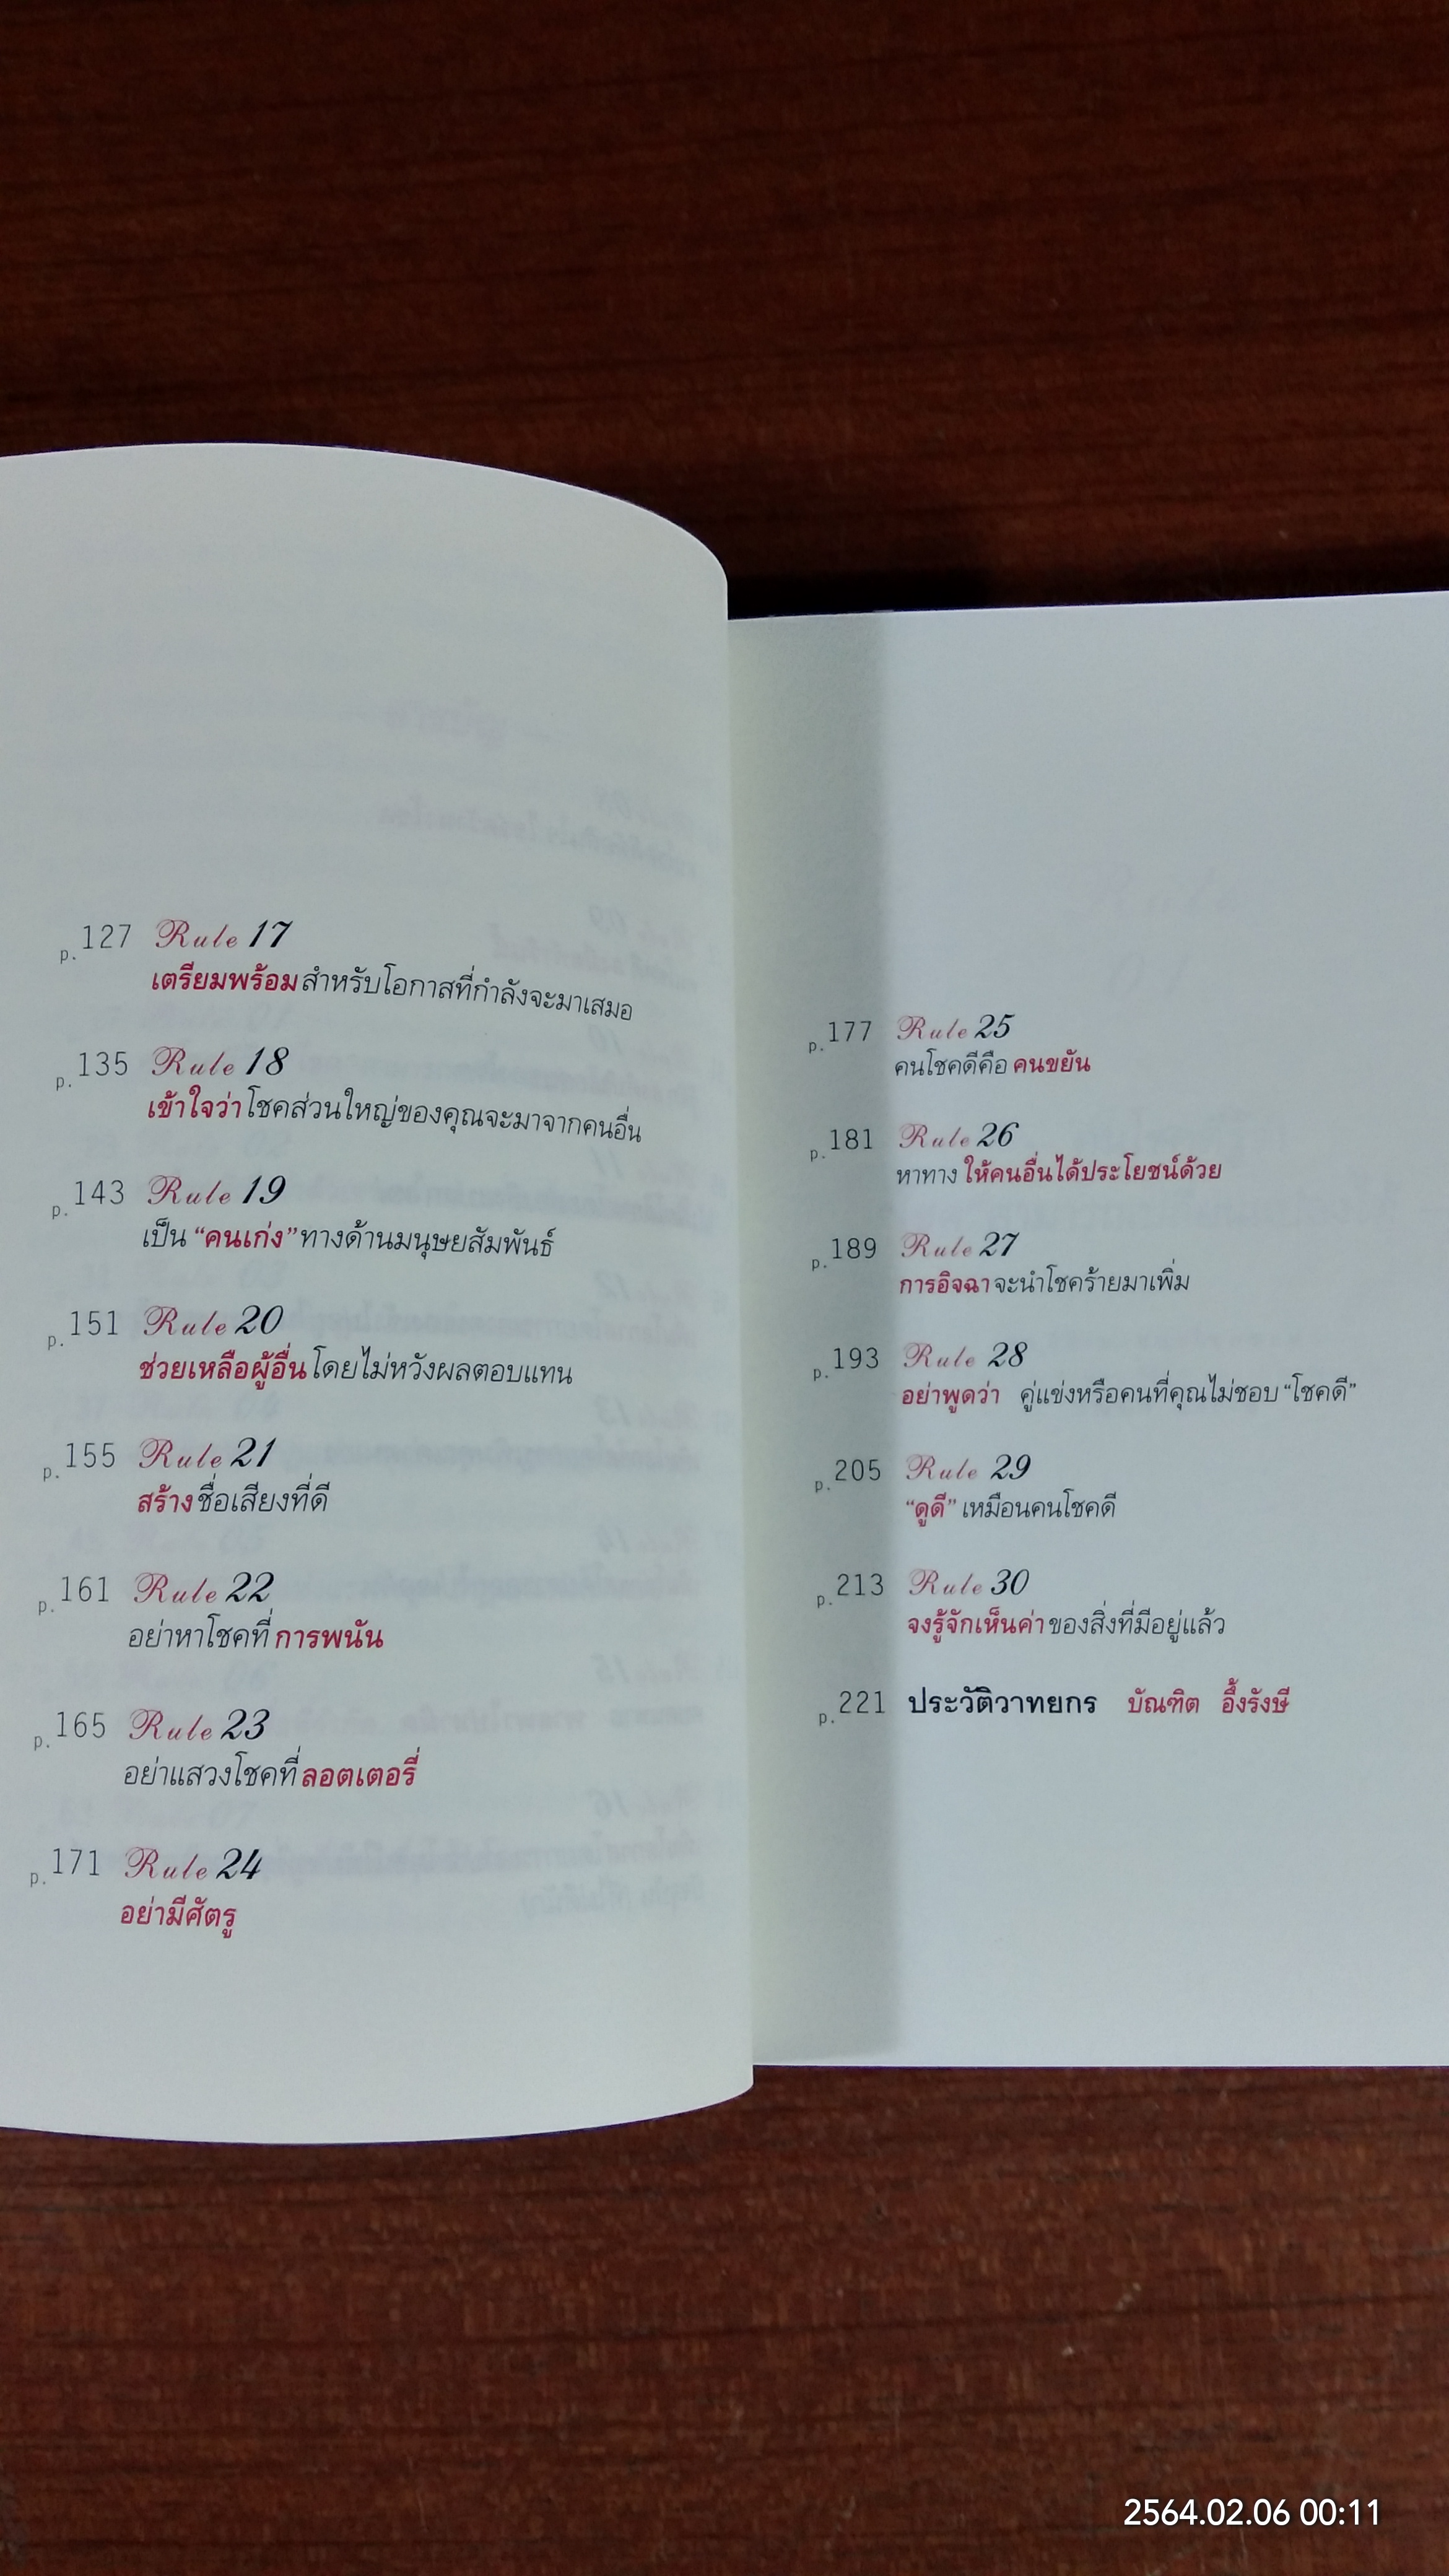 p.127 Rule 17
เตรียมพร้อมสำหรับโอกาสที่กำลังจะมาเสมอ
p.135 Rule 18
เข้าใจว่าโชคส่วนใหญ่ของคุณจะมาจากคนอื่น
p.143 Rule 19
เป็น “คนเก่ง” ทางด้านมนุษยสัมพันธ์
p.151 Rule 20
ช่วยเหลือผู้อื่นโดยไม่หวังผลตอบแทน
p.155 Rule 21
สร้างชื่อเสียงที่ดี
p.161 Rule 22
อย่าหาโชคที่การพนัน
p.165 Rule 23
อย่าแสวงโชคที่ลอตเตอรี่
p.171 Rule 24
อย่ามีศัตรู
p.177 Rule 25
คนโชคดีคือ คนขยัน
p.181 Rule 26
หาทาง ให้คนอื่นได้ประโยชน์ด้วย
p.189 Rule 27
การอิจฉาจะนำโชคร้ายมาเพิ่ม
p.193 Rule 28
อย่าพูดว่า คู่แข่งหรือคนที่คุณไม่ชอบ “โชคดี”
p.205 Rule 29
“ดูดี” เหมือนคนโชคดี
p.213 Rule 30
จงรู้จักเห็นค่าของสิ่งที่มีอยู่แล้ว
p.221 ประวัติวาทยกร บัณฑิต อึ้งรังษี
2564.02.06 00:11